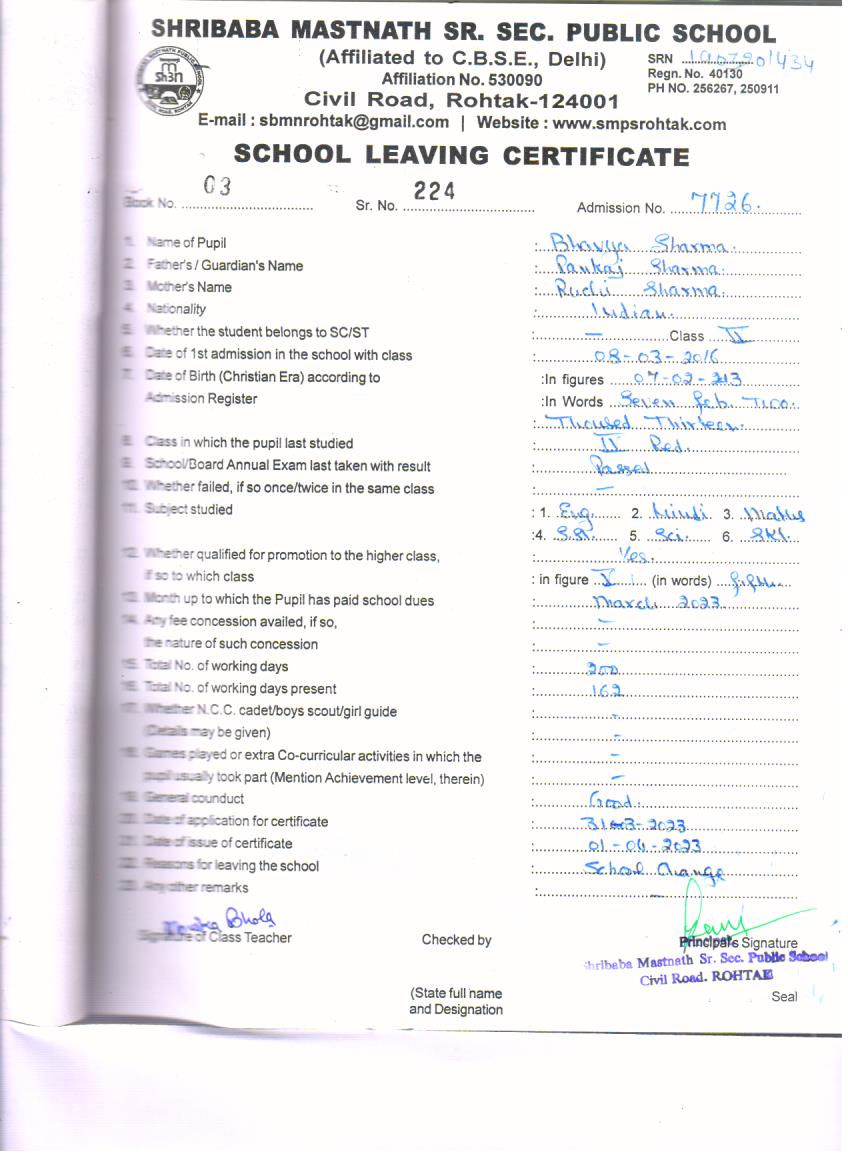 SHRIBABA MASTNATH SR. SEC. PUBLIC SCHOOL
(Affiliated to C.B.S.E., Delhi)
SRN 1907301434
Affiliation No. 530090
Regn. No. 40130
Civil Road, Rohtak-124001
PH NO. 256267, 250911
E-mail : sbmnrohtak@gmail.com | Website : www.smpsrohtak.com
SCHOOL LEAVING CERTIFICATE
Book No. 03 Sr. No. 224 Admission No. 7726.
1. Name of Pupil : Bhavya Sharma.
2. Father's / Guardian's Name : Pankaj Sharma.
3. Mother's Name : Ruchi Sharma.
4. Nationality : Indian.
5. Whether the student belongs to SC/ST : — Class II
6. Date of 1st admission in the school with class : 08-03-2016
7. Date of Birth (Christian Era) according to :In figures 07-02-213
Admission Register :In Words Seven Feb. Two.
: Thoused Thirteen.
8. Class in which the pupil last studied : Red.
9. School/Board Annual Exam last taken with result : Passed
10. Whether failed, if so once/twice in the same class : —
11. Subject studied : 1. Eng. 2. Hindi 3. Maths
:4. S.St. 5. Sci. 6. Skt.
12. Whether qualified for promotion to the higher class, : Yes.
if so to which class : in figure V (in words) fifth
13. Month up to which the Pupil has paid school dues : March 2023
14. Any fee concession availed, if so, : –
the nature of such concession : –
15. Total No. of working days : 200
16. Total No. of working days present : 162
17. Whether N.C.C. cadet/boys scout/girl guide : -
(Details may be given) : -
18. Games played or extra Co-curricular activities in which the : –
pupil usually took part (Mention Achievement level, therein) : –
19. General counduct : Good.
20. Date of application for certificate : 31-03-2023
21. Date of issue of certificate : 01-04-2023
22. Reasons for leaving the school : School Change
23. Any other remarks : —
Bhola
Signature of Class Teacher Checked by Principal's Signature
Shribaba Mastnath Sr. Sec. Public School
Civil Road. ROHTAK
(State full name Seal
and Designation